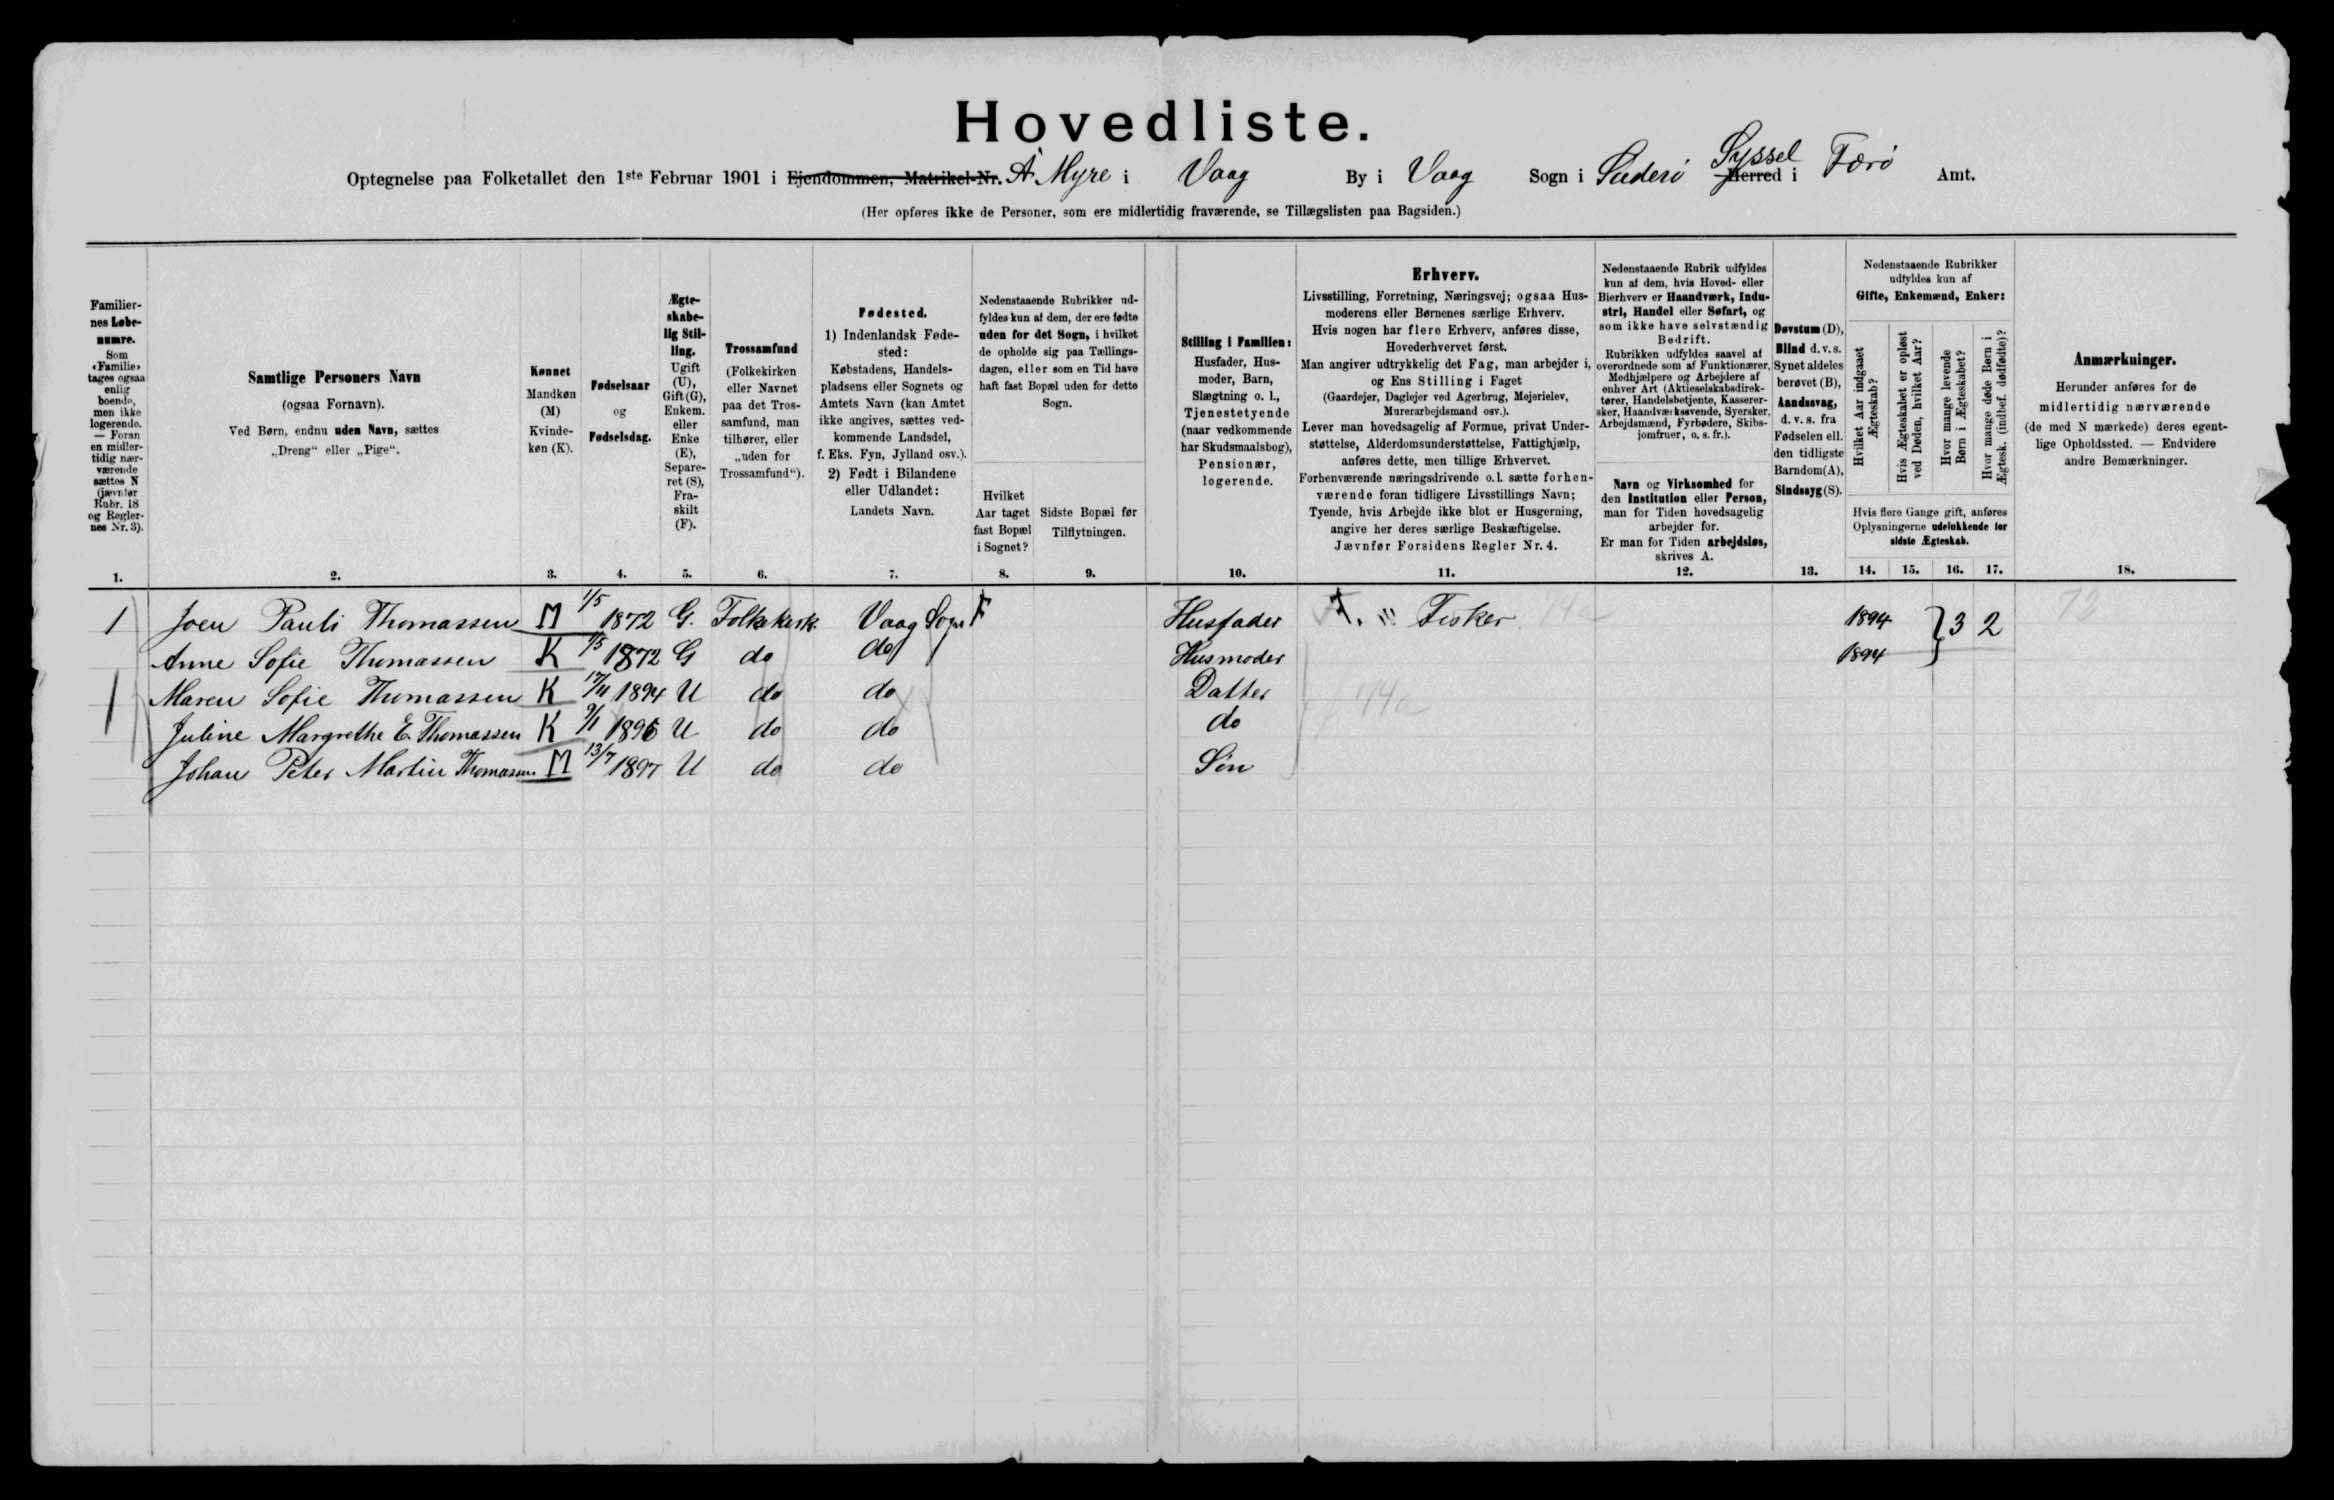 Hovedliste.
Optegnelse paa Folketallet den 1ste Februar 1901 i Ejendommen, Matrikel-Nr. Á Myre i Vaag By i Vaag Sogn i Suderö Syssel Herred i Færö Amt.
(Her opføres ikke de Personer, som ere midlertidig fraværende, se Tillægslisten paa Bagsiden.)
Familiernes Løbenumre.
Som «Familie» tages ogsaa enlig boende, men ikke logerende. — Foran en midlertidig nærværende sættes N (jævnfør Rubr. 18 og Reglernes Nr. 3).
1.
Samtlige Personers Navn
(ogsaa Fornavn).
Ved Børn, endnu uden Navn, sættes
„Dreng“ eller „Pige“.
2.
Kønnet
Mandkøn
(M)
Kvindekøn (K).
3.
Fødselsaar
og
Fødselsdag.
4.
Ægteskabelig Stilling.
Ugift (U), Gift (G), Enkem. eller Enke (E), Separeret (S), Fraskilt (F).
5.
Trossamfund
(Folkekirken eller Navnet paa det Trossamfund, man tilhører, eller „uden for Trossamfund“).
6.
Fødested.
1) Indenlandsk Fødested:
Købstadens, Handelspladsens eller Sognets og Amtets Navn (kan Amtet ikke angives, sættes vedkommende Landsdel, f. Eks. Fyn, Jylland osv.).
2) Født i Bilandene eller Udlandet:
Landets Navn.
7.
Nedenstaaende Rubrikker udfyldes kun af dem, der ere fødte uden for det Sogn, i hvilket de opholde sig paa Tællingsdagen, eller som en Tid have haft fast Bopæl uden for dette Sogn.
Hvilket Aar taget fast Bopæl i Sognet?
8.
Sidste Bopæl før Tilflytningen.
9.
Stilling i Familien:
Husfader, Husmoder, Barn, Slægtning o. l., Tjenestetyende (naar vedkommende har Skudsmaalsbog), Pensionær, logerende.
10.
Erhverv.
Livsstilling, Forretning, Næringsvej; ogsaa Husmoderens eller Børnenes særlige Erhverv.
Hvis nogen har flere Erhverv, anføres disse, Hovederhvervet først.
Man angiver udtrykkelig det Fag, man arbejder i, og Ens Stilling i Faget
(Gaardejer, Daglejer ved Agerbrug, Mejerielev, Murerarbejdsmand osv.).
Lever man hovedsagelig af Formue, privat Understøttelse, Alderdomsunderstøttelse, Fattighjælp, anføres dette, men tillige Erhvervet.
Forhenværende næringsdrivende o. l. sætte forhenværende foran tidligere Livsstillings Navn;
Tyende, hvis Arbejde ikke blot er Husgerning, angive her deres særlige Beskæftigelse.
Jævnfør Forsidens Regler Nr. 4.
11.
Nedenstaaende Rubrik udfyldes kun af dem, hvis Hoved- eller Bierhverv er Haandværk, Industri, Handel eller Søfart, og som ikke have selvstændig Bedrift.
Rubrikken udfyldes saavel af overordnede som af Funktionærer, Medhjælpere og Arbejdere af enhver Art (Aktieselskabsdirektører, Handelsbetjente, Kasserersker, Haandværkssvende, Syersker, Arbejdsmænd, Fyrbødere, Skibsjomfruer, o. s. fr.).
Navn og Virksomhed for den Institution eller Person, man for Tiden hovedsagelig arbejder for.
Er man for Tiden arbejdsløs, skrives A.
12.
Døvstum (D), Blind d. v. s. Synet aldeles berøvet (B), Aandssvag, d. v. s. fra Fødselen ell. den tidligste Barndom (A), Sindssyg (S).
13.
Nedenstaaende Rubrikker udfyldes kun af
Gifte, Enkemænd, Enker:
Hvilket Aar indgaaet Ægteskab?
Hvis Ægteskabet er opløst ved Døden, hvilket Aar?
Hvor mange levende Børn i Ægteskabet?
Hvor mange døde Børn i Ægtesk. (indbef. dødfødte)?
Hvis flere Gange gift, anføres Oplysningerne udelukkende for sidste Ægteskab.
14. 15. 16. 17.
Anmærkninger.
Herunder anføres for de midlertidig nærværende (de med N mærkede) deres egentlige Opholdssted. — Endvidere andre Bemærkninger.
18.
1 Joen Pauli Thomassen M 1/5 1872 G. Folkekirk. Vaag Sogn F Husfader F. Fisker 74a 1894 } 3 2 72
Anne Sofie Thomassen K 1/5 1872 G do do Husmoder 1894
Maren Sofie Thomassen K 17/11 1894 U do do Datter 74a
Juline Margrethe E. Thomassen K 9/1 1896 U do do do
Johan Peter Martin Thomassen M 13/7 1897 U do do Sön